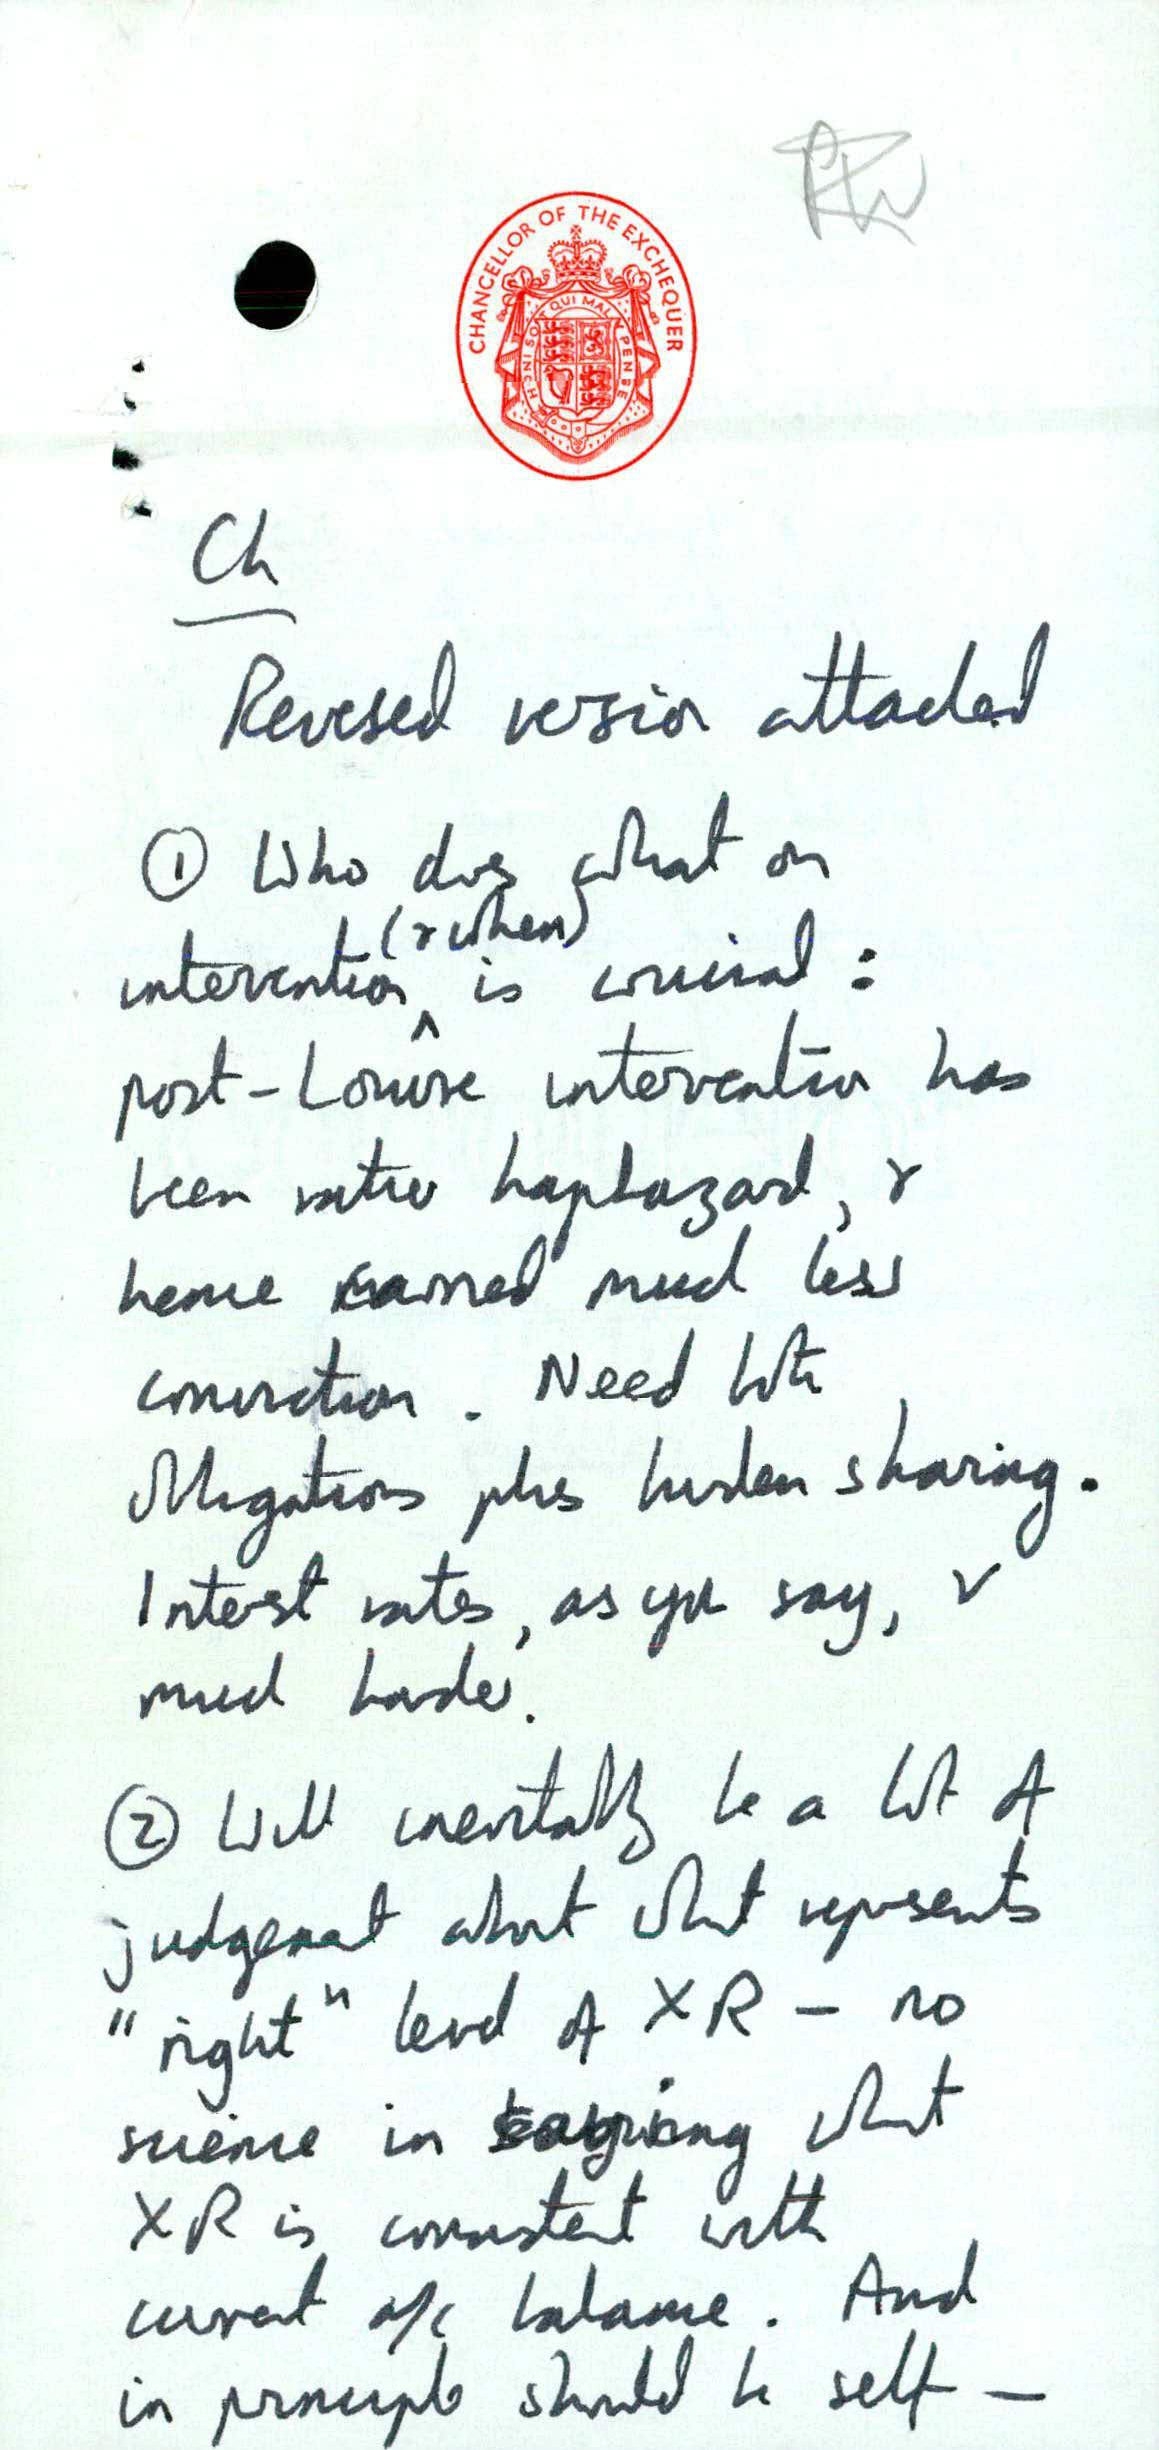 CHANCELLOR OF THE EXCHEQUER
HONI SOIT QUI MAL Y PENSE
Ch
Revised version attached
① Who does what on
(& when)
intervention ^ is crucial :
post-Louvre intervention has
been rather haphazard, &
hence carried much less
conviction. Need both
obligations plus burden sharing.
Interest rates, as you say, v
much harder.
② Will inevitably be a lot of
judgement about what represents
"right" level of XR – no
science in saying what
XR is consistent with
current a/c balance. And
in principle should be self –